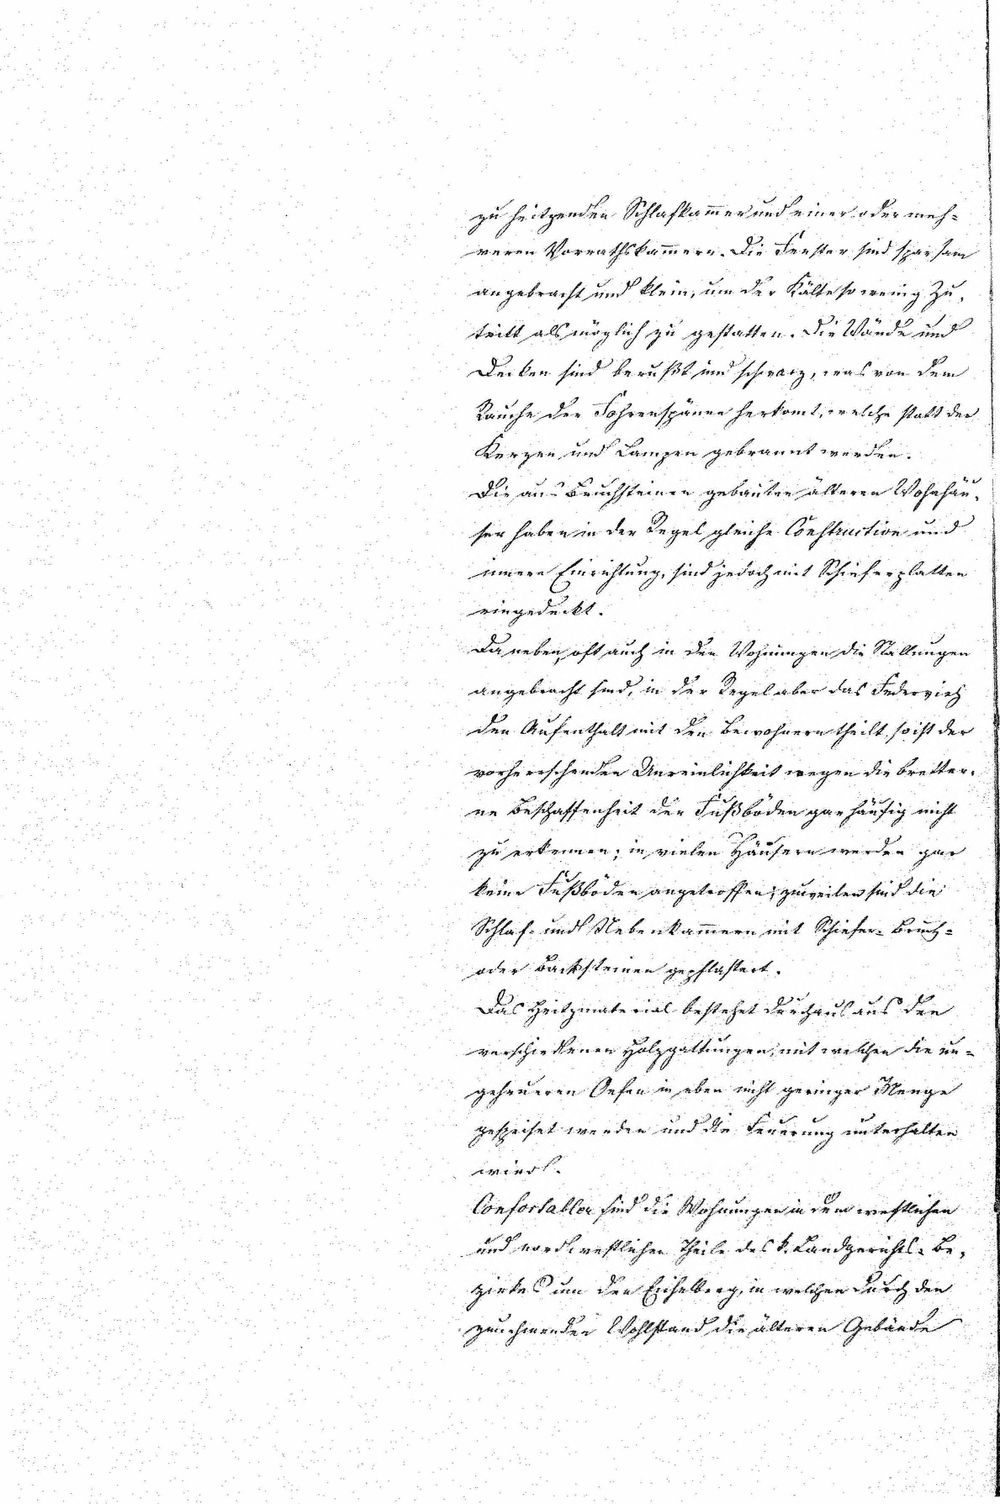 zu heitzenden Schlafkam̅er und einer oder meh-
reren Vorrathskam̅ern. Die Fenster sind sparsam
angebracht und klein, um der Kälte so wenig Zu-
tritt als möglich zu gestatten. Die Wände und
Decken sind berußt und schwarz, was von dem
Rauche der Föhrenspänne herkomt, welche statt der
Kerzen und Lampen gebrannt werden.
Die aus Bruchsteinen gebauten älteren Wohnhäu-
ser haben in der Regel gleiche Construction und
innere Einrichtung, sind jedoch mit Schieferplatten
eingedeckt.
Da neben, oft auch in den Wohnungen die Stallungen
angebracht sind, in der Regel aber das Federvieh
den Aufenthalt mit den Bewohnern theilt, so ist der
vorherrschenden Unreinlichkeit wegen die bretter-
ne Beschaffenheit der Fußböden gar häufig nicht
zu erkennen; in vielen Häusern werden gar
keine Fußböden angetroffen; zuweilen sind die
Schlaf- und Nebenkam̅ern mit Schiefer- Bruch-
oder Backsteinen gepflastert.
Das Heitzmaterial bestehet durchaus aus den
verschiedenen Holzgattungen, mit welchen die un-
geheueren Oefen in eben nicht geringer Menge
gespeiset werden und die Feuerung unterhalten
wird.
Confortabler sind die Wohnungen in dem westlichen
und nordwestlichen Theile des k. Landgerichts-Be-
zirkes um den Eichelberg, in welchen durch den
zunehmenden Wohlstand die älteren Gebäude